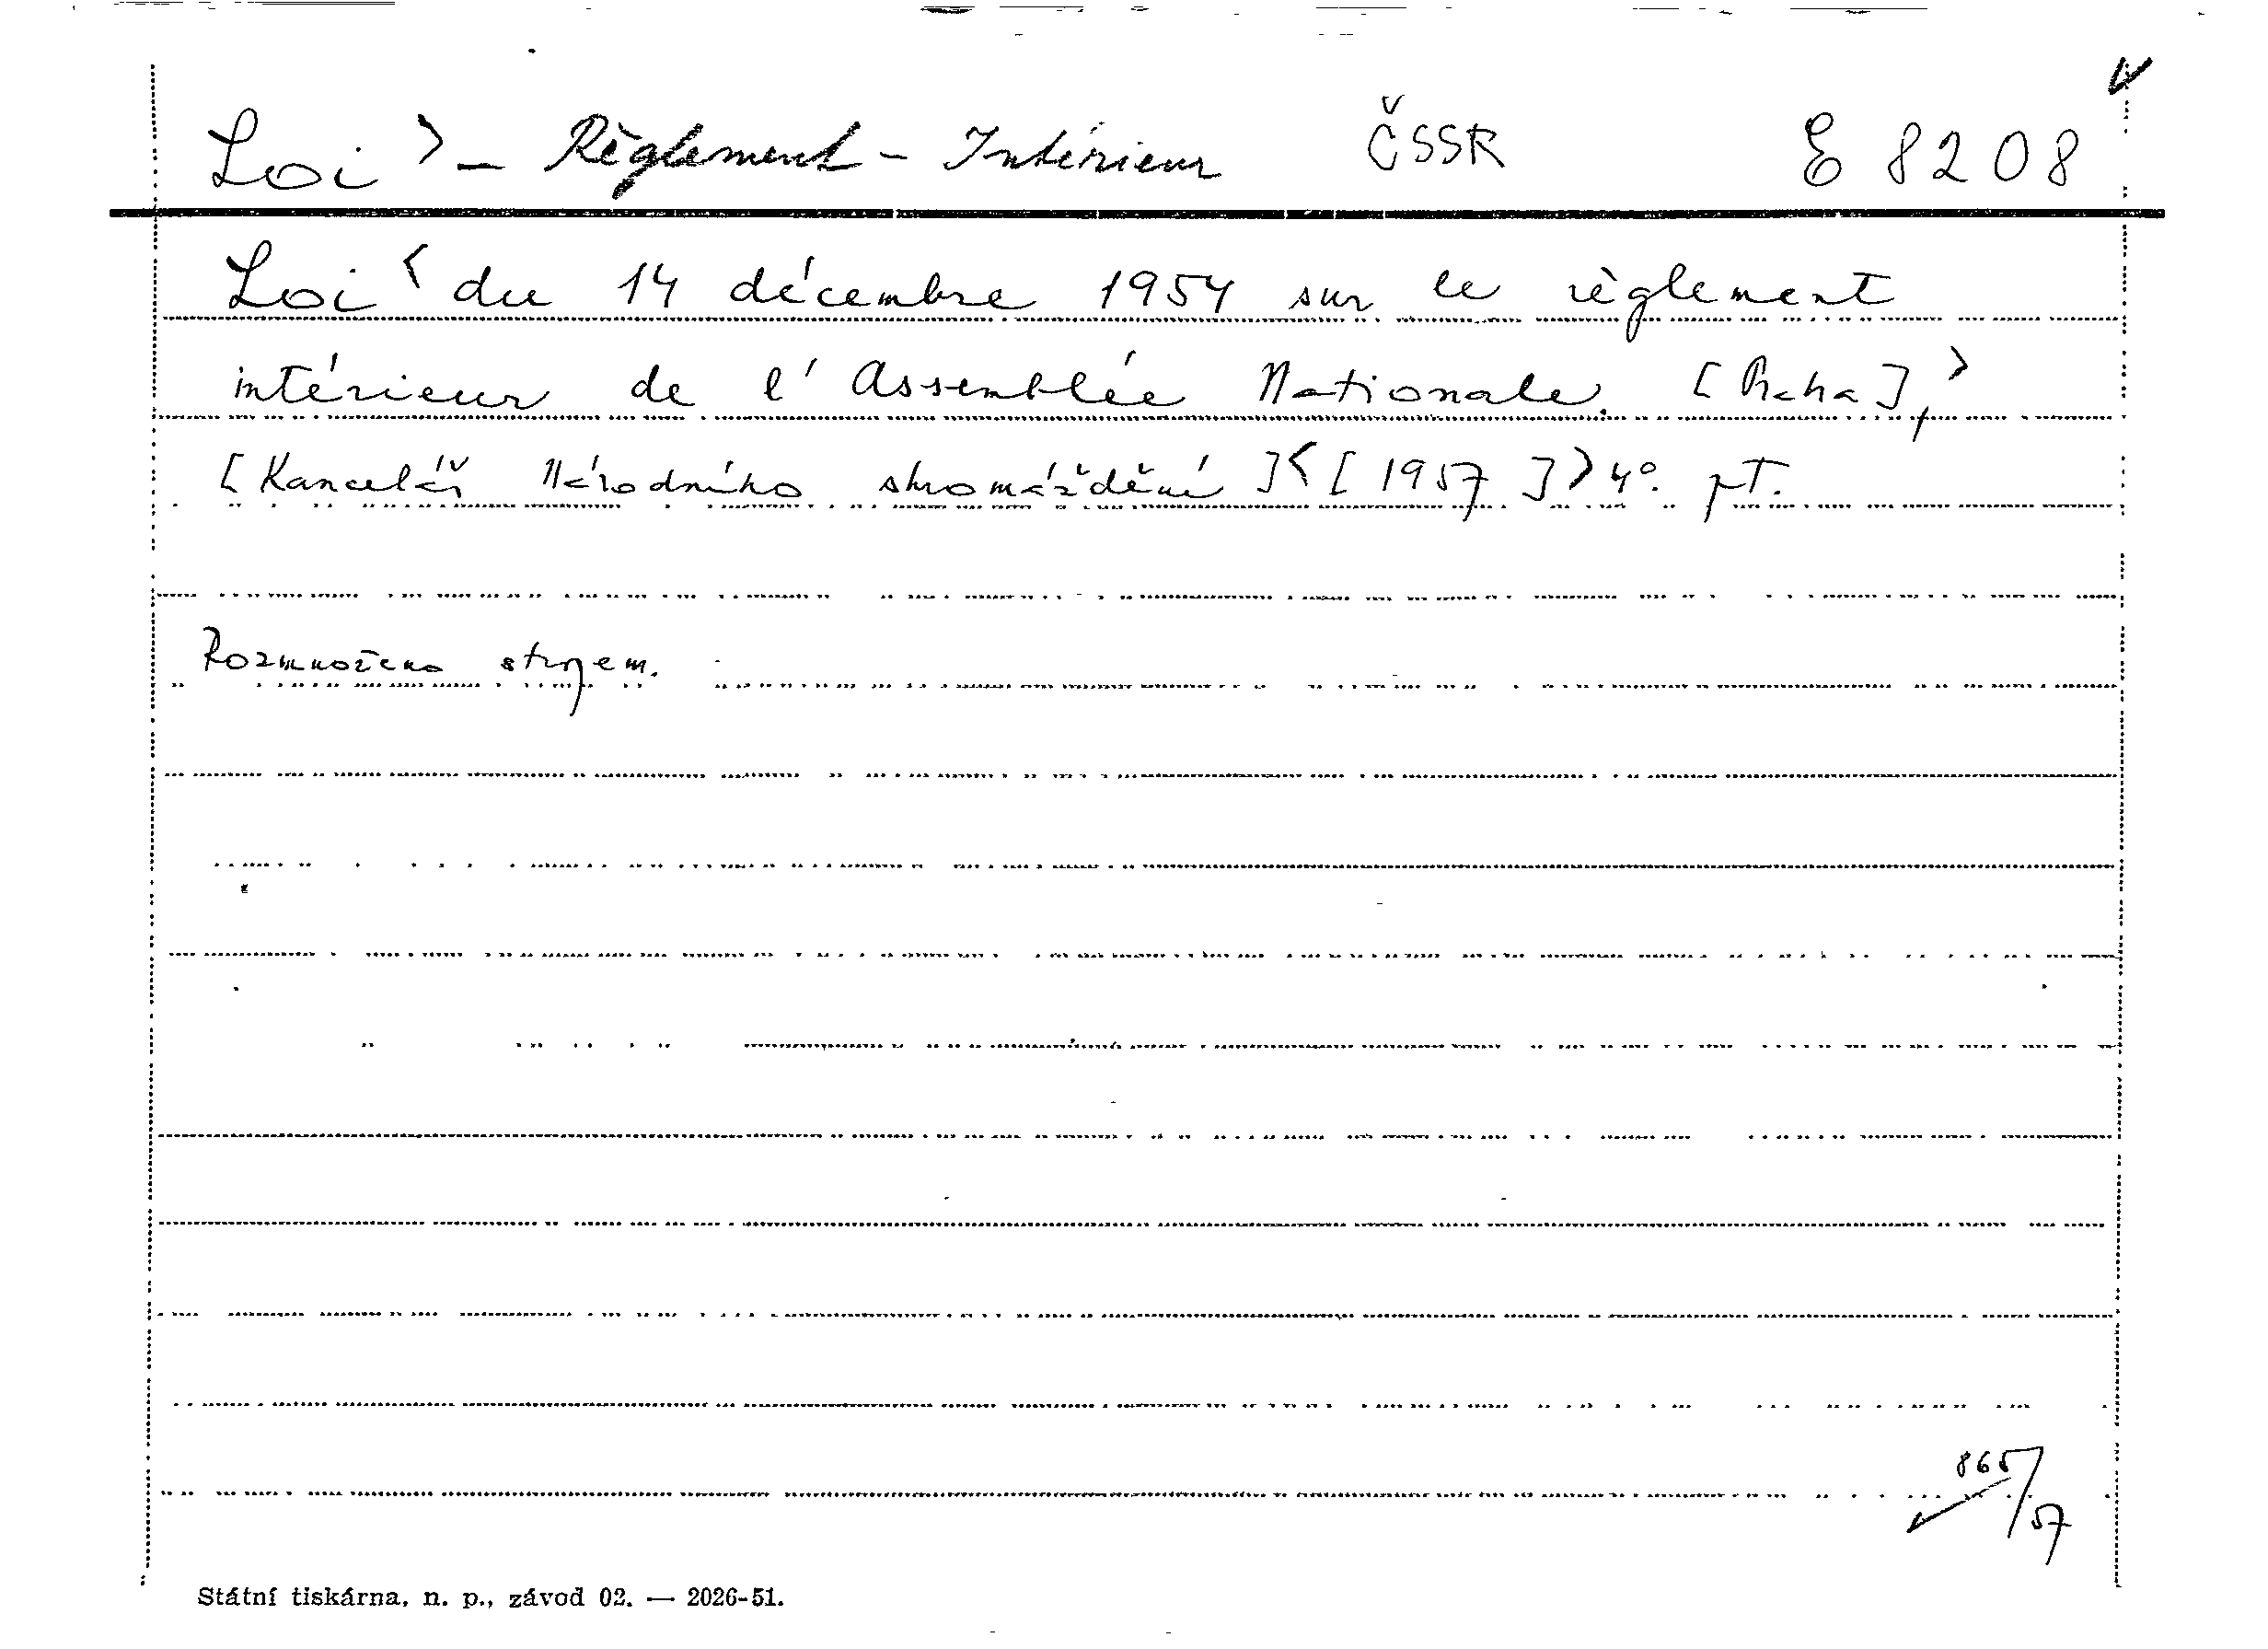 Loi > - Règlement - Intérieur ČSSR E 8208
Loi < du 14 décembre 1954 sur le règlement
intérieur de l'Assemblée Nationale. [Praha], >
[Kancelář Národního shromáždění ] < [ 1957 ] > 4°. pt.
Rozmnoženo strojem.
865/57
Státní tiskárna, n. p., závod 02. — 2026-51.